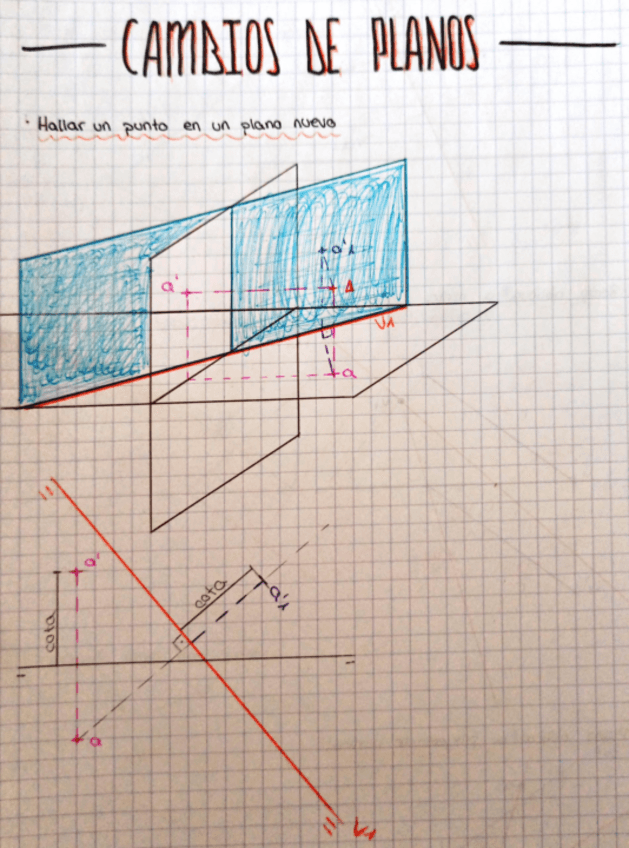 CAMBIOS DE PLANOS
· Hallar un punto en un plano nuevo
a'1
a'
A
V1
a
a'
cota
a'1
cota
a
V1